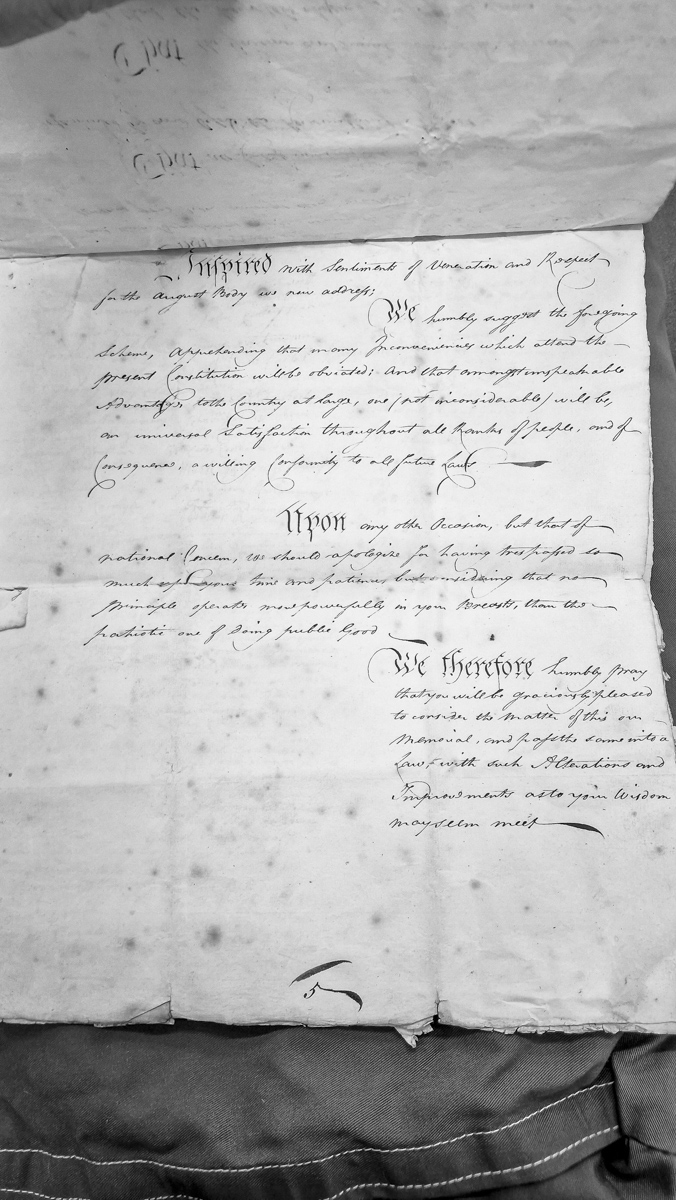 That
That
Inspired with Sentiments of Veneration and Respect
for the august Body we now address;
We humbly suggest the foregoing
Scheme, Apprehending that many Inconveniencies which attend the
present Constitution will be obviated; and that amongst unspeakable
Advantages to the Country at large, one (not inconsiderable) will be,
an universal Satisfaction throughout all Ranks of people, and of
Consequence, a willing Conformity to all future Laws
Upon any other Occasion, but that of
national Concern, we should apologize for having trespassed so
much upon your time and patience but considering that no
principle operates more powerfully in your Breasts, than the
patriotic one of doing public Good
We therefore humbly pray
that you will be graciously pleased
to consider the matter of this our
Memorial, and pass the same into a
Law with such Alterations and
Improvements as to your Wisdom
may seem meet
5